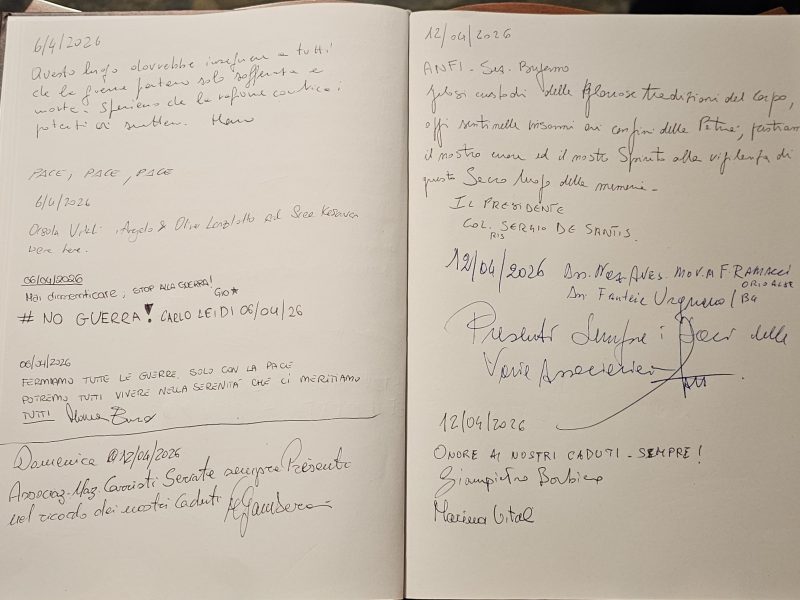 6/4/2026
Questo luogo dovrebbe insegnare a tutti
che la guerra portano solo sofferenza e
morte. Speriamo che la ragione convinca i
potenti a smettere.
PACE, PACE, PACE
6/4/2026
Orsola Vitali, Angelo & Oliva
were here.
06/04/2026
Mai dimenticare, STOP ALLA GUERRA!
GIO★
# NO GUERRA! CARLO LEIDI 06/04/26
06/04/2026
FERMIAMO TUTTE LE GUERRE, SOLO CON LA PACE
POTREMO TUTTI VIVERE NELLA SERENITA' CHE CI MERITIAMO
TUTTI
Domenica 12/04/2026
Associaz. Naz. Carristi Seriate sempre Presenti
nel ricordo dei nostri Caduti
12/04/2026
ANFI - Sez.
gelosi custodi delle gloriose tradizioni del Corpo,
sentinelle ai confini della Patria, portiamo
il nostro cuore ed il nostro Spirito alla vigilanza di
questo Sacro luogo della memoria -
IL PRESIDENTE
COL. RIS SERGIO DE SANTIS
12/04/2026 Ass. Naz. MOV. A F. RAMACCI
ORIO AL SE
Ass Fanteria Urgnano / BG
Presenti Sempre i Soci delle
Varie Associazioni
12/04/2026
ONORE AI NOSTRI CADUTI - SEMPRE!
Giampietro
Marina Vitali